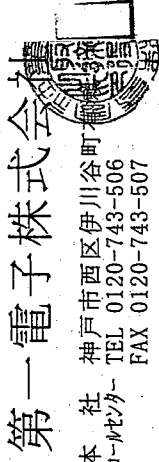 第一電子株式会社
本　社　神戸市西区伊川谷町
ｺｰﾙｾﾝﾀｰ TEL 0120-743-506
FAX 0120-743-507